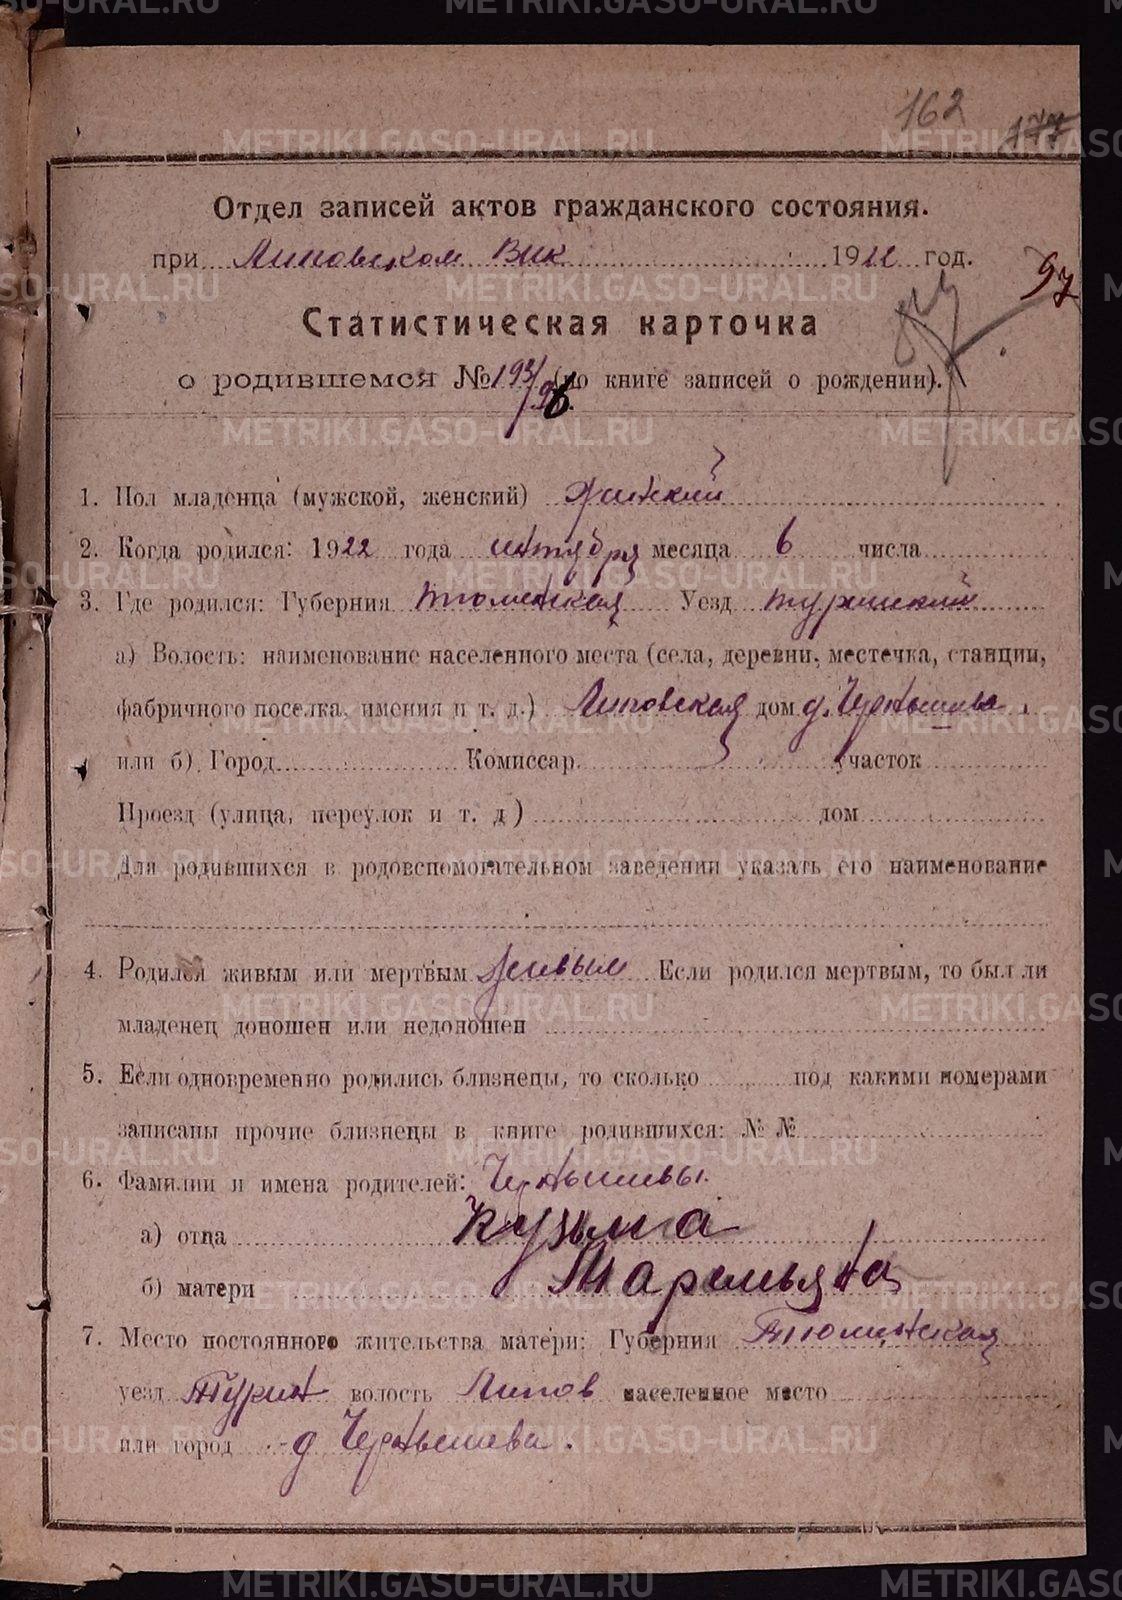 162 177
Отдел записей актов гражданского состояния.
при Липовском Вик 1922 год.
97
Статистическая карточка
о родившемся № 193/96 (по книге записей о рождении).
1. Пол младенца (мужской, женский) Женский
2. Когда родился: 1922 года октября месяца 6 числа
3. Где родился: Губерния Тюменская Уезд Туринский
а) Волость: наименование населенного места (села, деревни, местечка, станции,
фабричного поселка, имения и т. д.) Липовская дом д. Чернышева.
или б) Город Комиссар. участок
Проезд (улица, переулок и т. д) дом
Для родившихся в родовспомогательном заведении указать его наименование
4. Родился живым или мертвым Живым Если родился мертвым, то был ли
младенец доношен или недоношен
5. Если одновременно родились близнецы, то сколько под какими номерами
записаны прочие близнецы в книге родившихся: № №
6. Фамилии и имена родителей: Чернышевы.
а) отца Кузьма
б) матери Маремьяна
7. Место постоянного жительства матери: Губерния Тюменская
уезд Турин волость Липов населенное место
или город д Чернышева.
METRIKI.GASO-URAL.RU